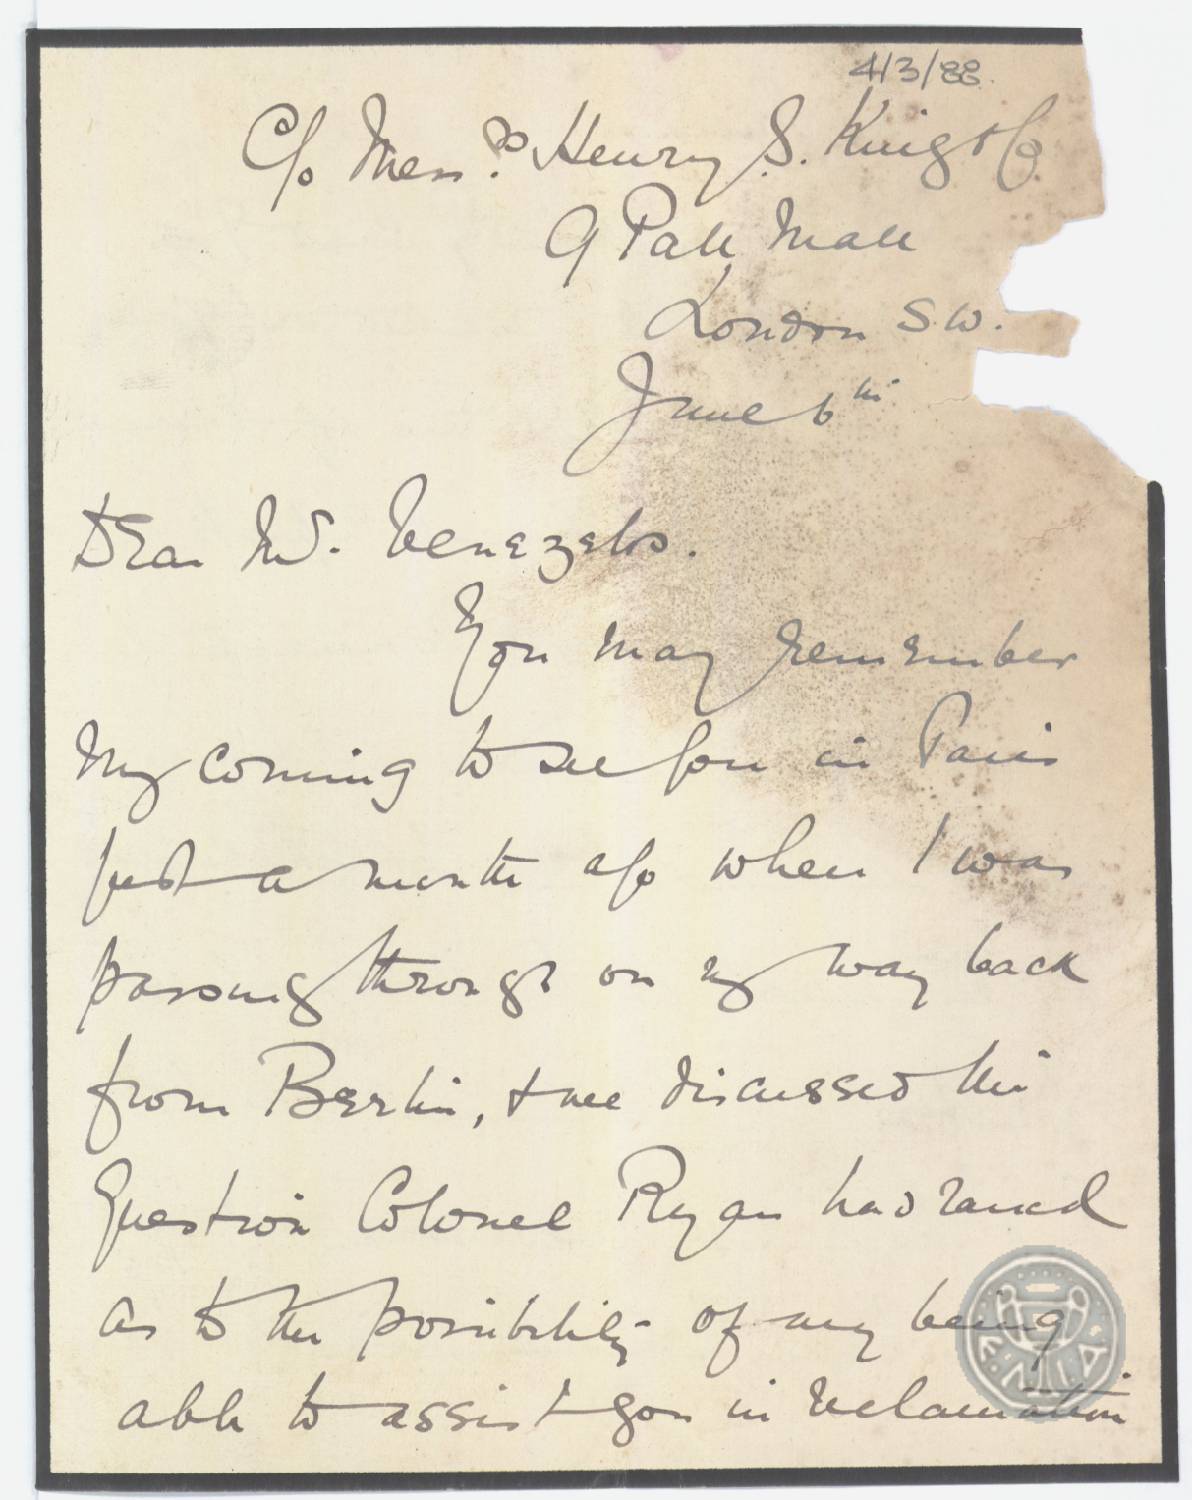 4/3/88.
C/o Messrs Henry S. King & Co
9 Pall Mall
London S.W.
June 6th
Dear Mr. Venezelos.
You may remember
my coming to see you in Paris
just a month ago when I was
passing through on my way back
from Berlin, & we discussed the
question Colonel Ryan had raised
as to the possibility of my being
able to assist you in reclamation
Ε.Λ.Ι.Α